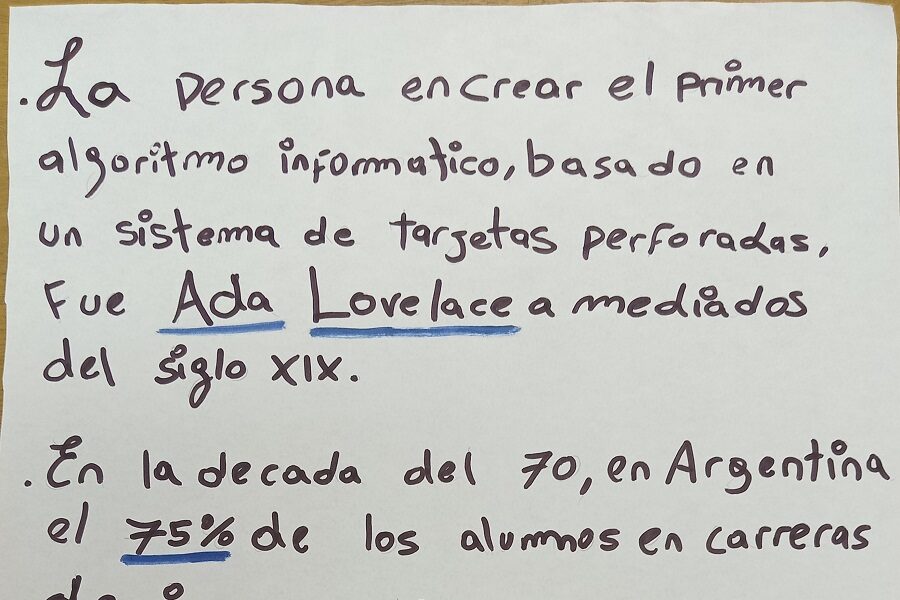 .La persona en crear el primer
algoritmo informatico, basado en
un sistema de targetas perforadas,
Fue Ada Lovelace a mediados
del siglo XIX.
.En la decada del 70, en Argentina
el 75% de los alumnos en carreras